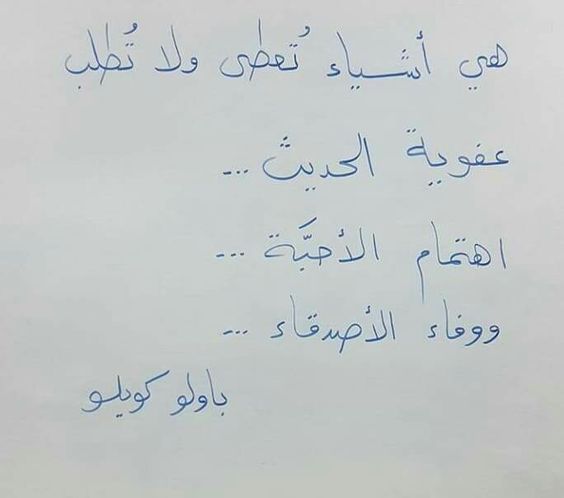 هي أشياء تُعطى ولا تُطلب
عفوية الحديث ...
اهتمام الأحبَّة ...
ووفاء الأصدقاء ...
باولو كويلو